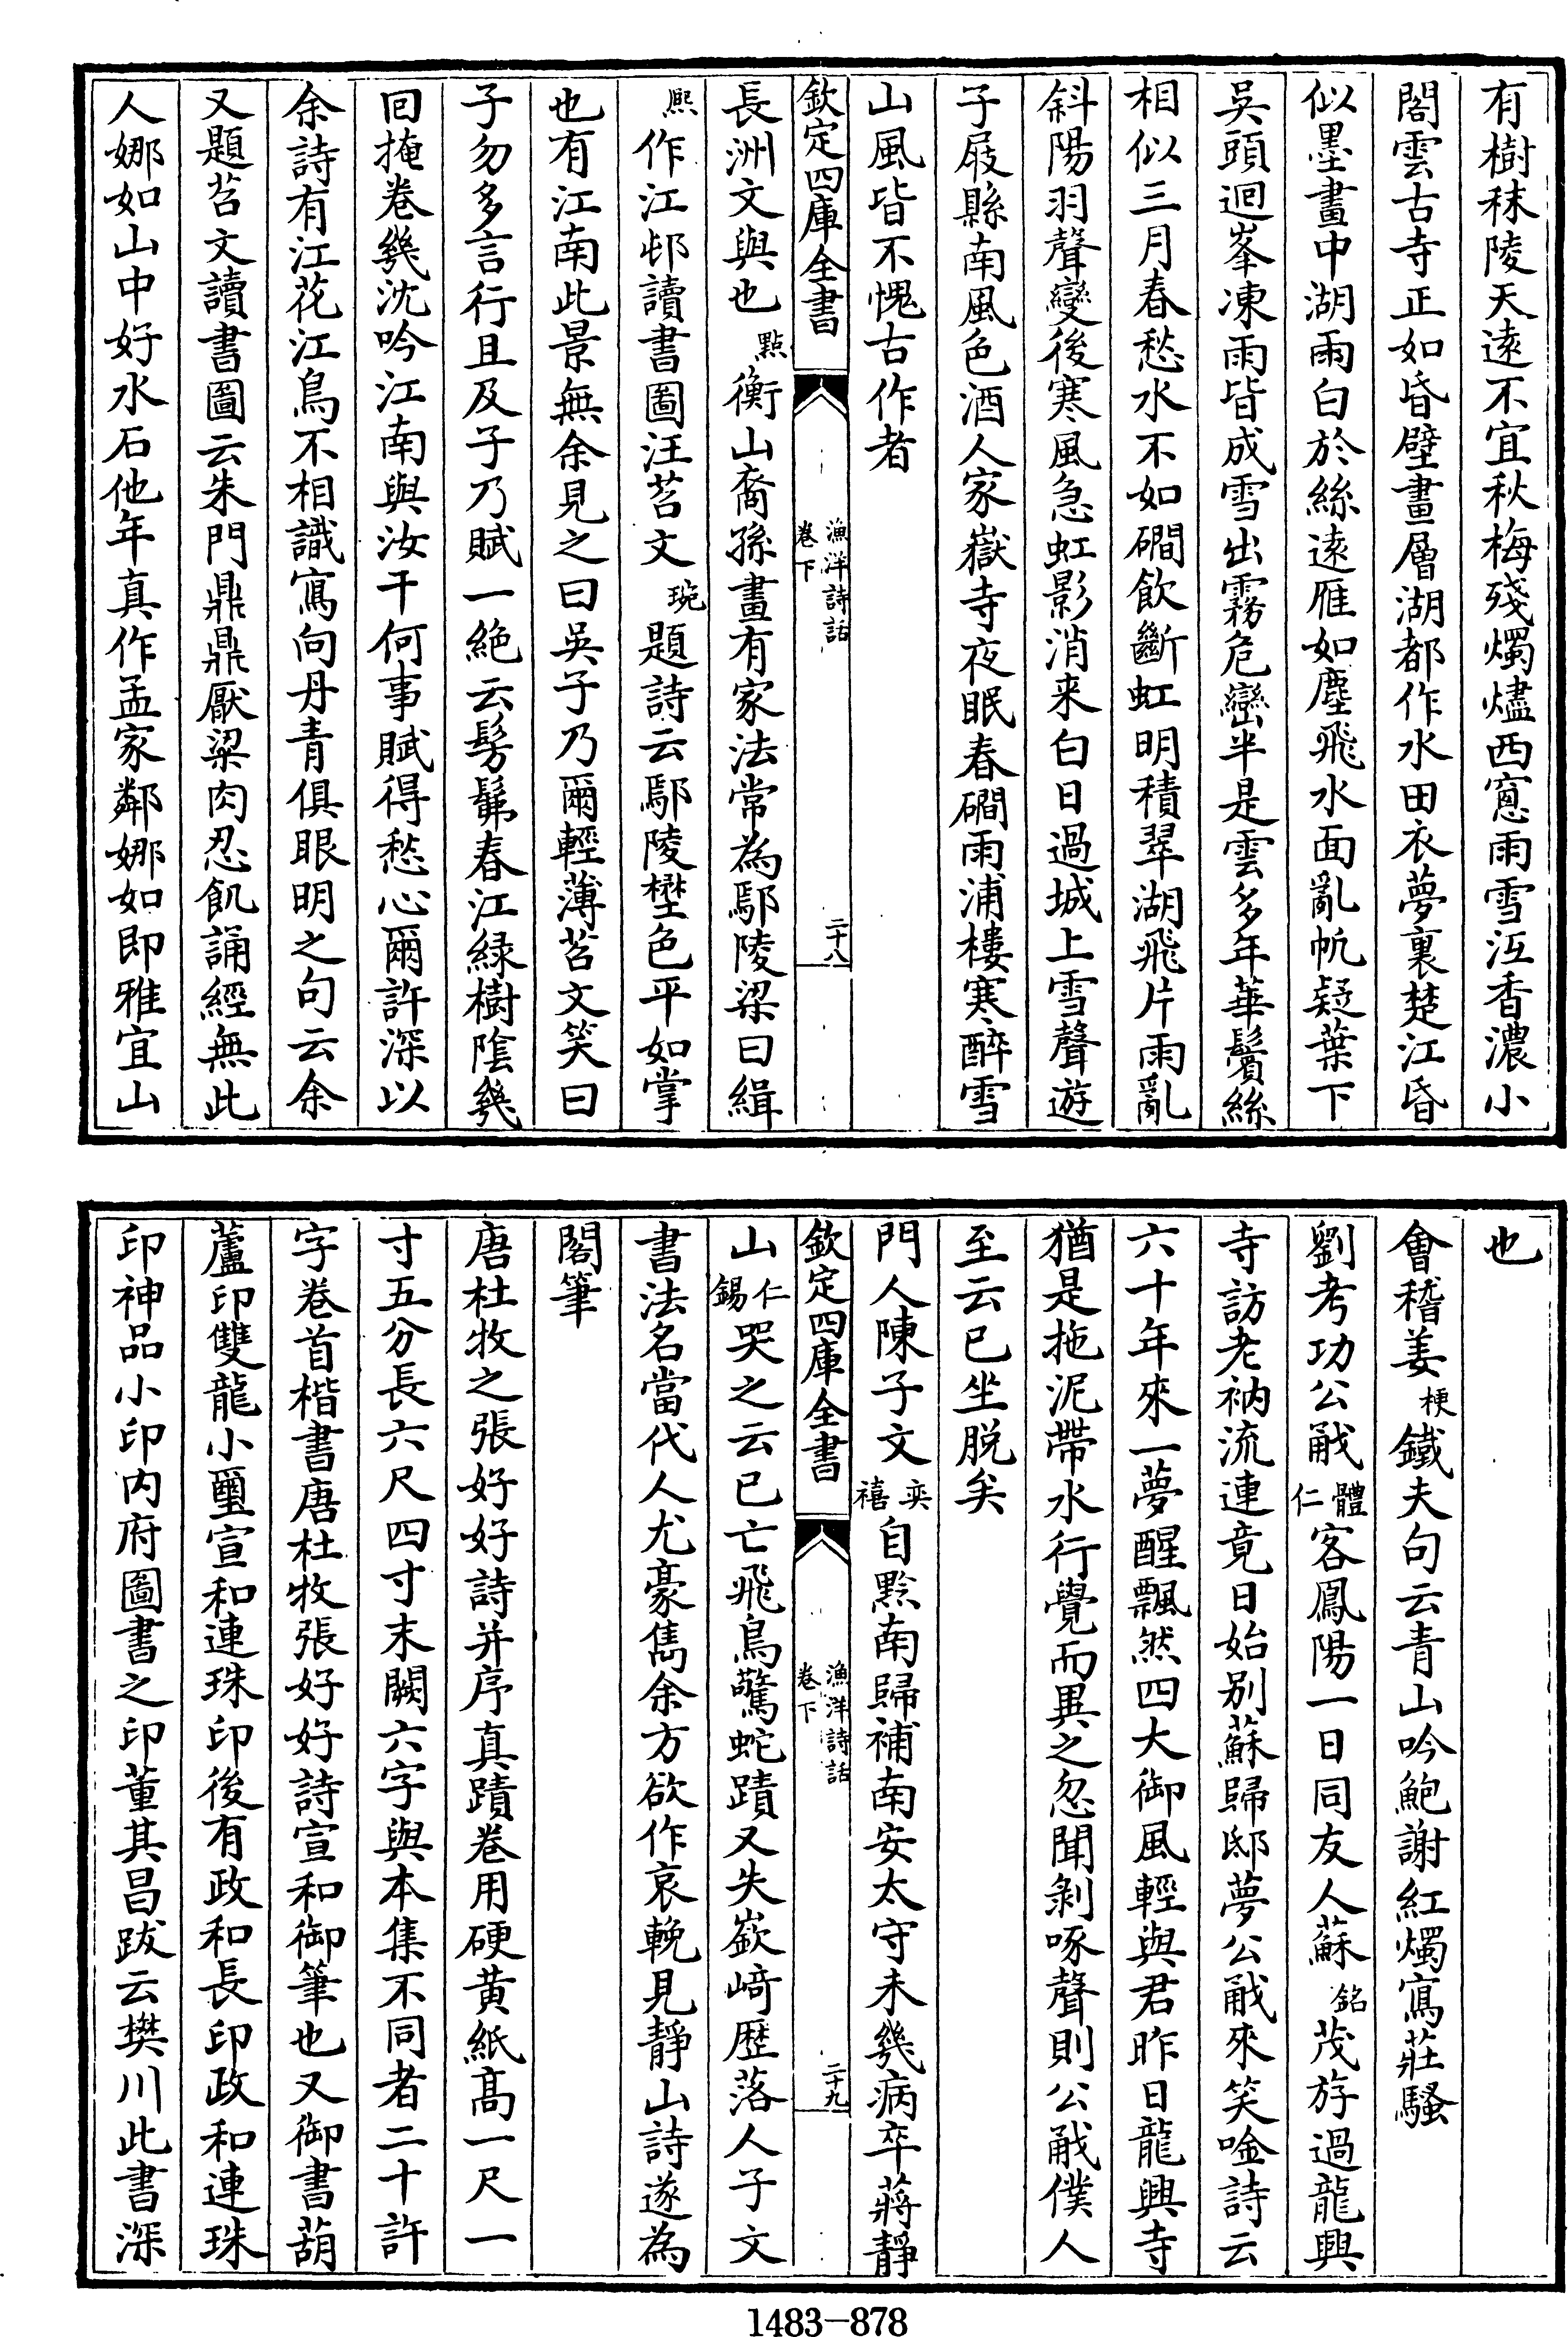 有樹秣陵天遠不宜秋梅殘燭燼西窻雨雪沍香濃小
閣雲古寺正如昏壁畫層湖都作水田衣夢裏楚江昏
似墨畫中湖雨白於絲遠雁如塵飛水面亂帆疑葉下
吳頭迴峯凍雨皆成雪出霧危巒半是雲多年華鬢絲
相似三月春愁水不如磵飲斷虹明積翠湖飛片雨亂
斜陽羽聲變後寒風急虹影消来白日過城上雪聲遊
子屐縣南風色酒人家嶽寺夜眠春磵雨浦樓寒醉雪
山風皆不愧古作者
欽定四庫全書 漁洋詩話 卷下 二十八
長洲文與也點衡山裔孫畫有家法常為鄢陵梁曰緝
熈作江邨讀書圖汪苕文琬題詩云鄢陵埜色平如掌
也有江南此景無余見之曰吳子乃爾輕薄苕文笑曰
子勿多言行且及子乃賦一絶云髣髴春江緑樹隂幾
回掩卷幾沈吟江南與汝干何事賦得愁心爾許深以
余詩有江花江鳥不相識寫向丹青俱眼明之句云余
又題苕文讀書圖云朱門鼎鼎厭粱肉忍飢誦經無此
人娜如山中好水石他年真作孟家鄰娜如即雅宜山
也
會稽姜梗鐵夫句云青山吟鮑謝紅燭寫莊騷
劉考功公㦷體仁客鳳陽一日同友人蘇銘茂斿過龍興
寺訪老衲流連竟日始别蘇歸邸夢公㦷來笑唫詩云
六十年來一夢醒飄然四大御風輕與君昨日龍興寺
猶是拖泥帶水行覺而異之忽聞剝啄聲則公㦷僕人
至云已坐脱矣
門人陳子文奕禧自黔南歸補南安太守未幾病卒蔣靜
欽定四庫全書 漁洋詩話 卷下 二十九
山仁錫哭之云已亡飛鳥驚蛇蹟又失嶔﨑歴落人子文
書法名當代人尤豪雋余方欲作哀輓見靜山詩遂為
閣筆
唐杜牧之張好好詩并序真蹟卷用硬黄紙髙一尺一
寸五分長六尺四寸末闕六字與本集不同者二十許
字卷首楷書唐杜牧張好好詩宣和御筆也又御書葫
蘆印雙龍小璽宣和連珠印後有政和長印政和連珠
印神品小印内府圖書之印董其昌跋云樊川此書深
1483-878